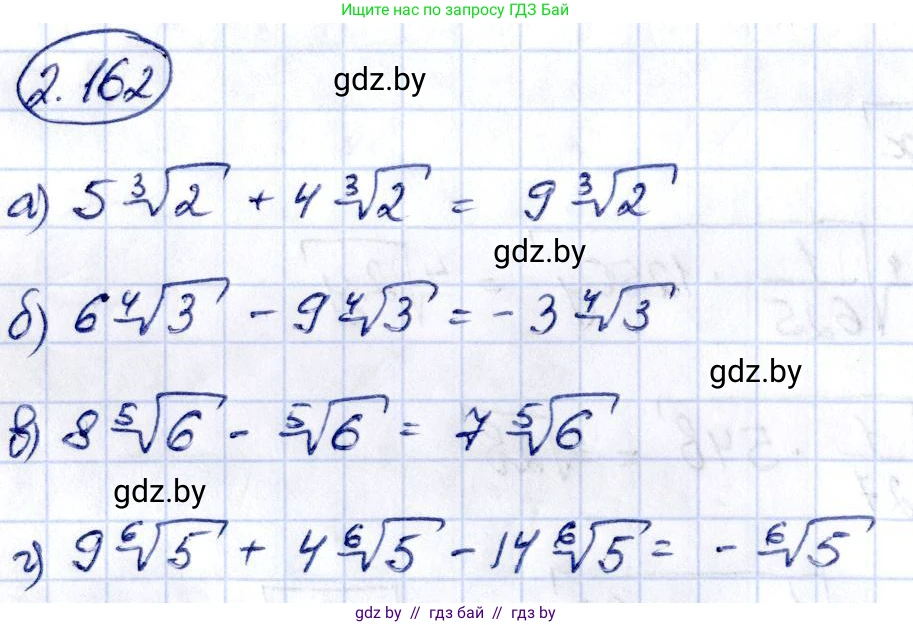 Ищите нас по запросу ГДЗ Бай
2.162
gdz.by
а) 5∛2 + 4∛2 = 9∛2
gdz.by
б) 6∜3 - 9∜3 = - 3∜3
gdz.by
в) 8⁵√6 - ⁵√6 = 7⁵√6
gdz.by
г) 9⁶√5 + 4⁶√5 - 14⁶√5 = - ⁶√5
gdz.by // гдз бай // гдз by